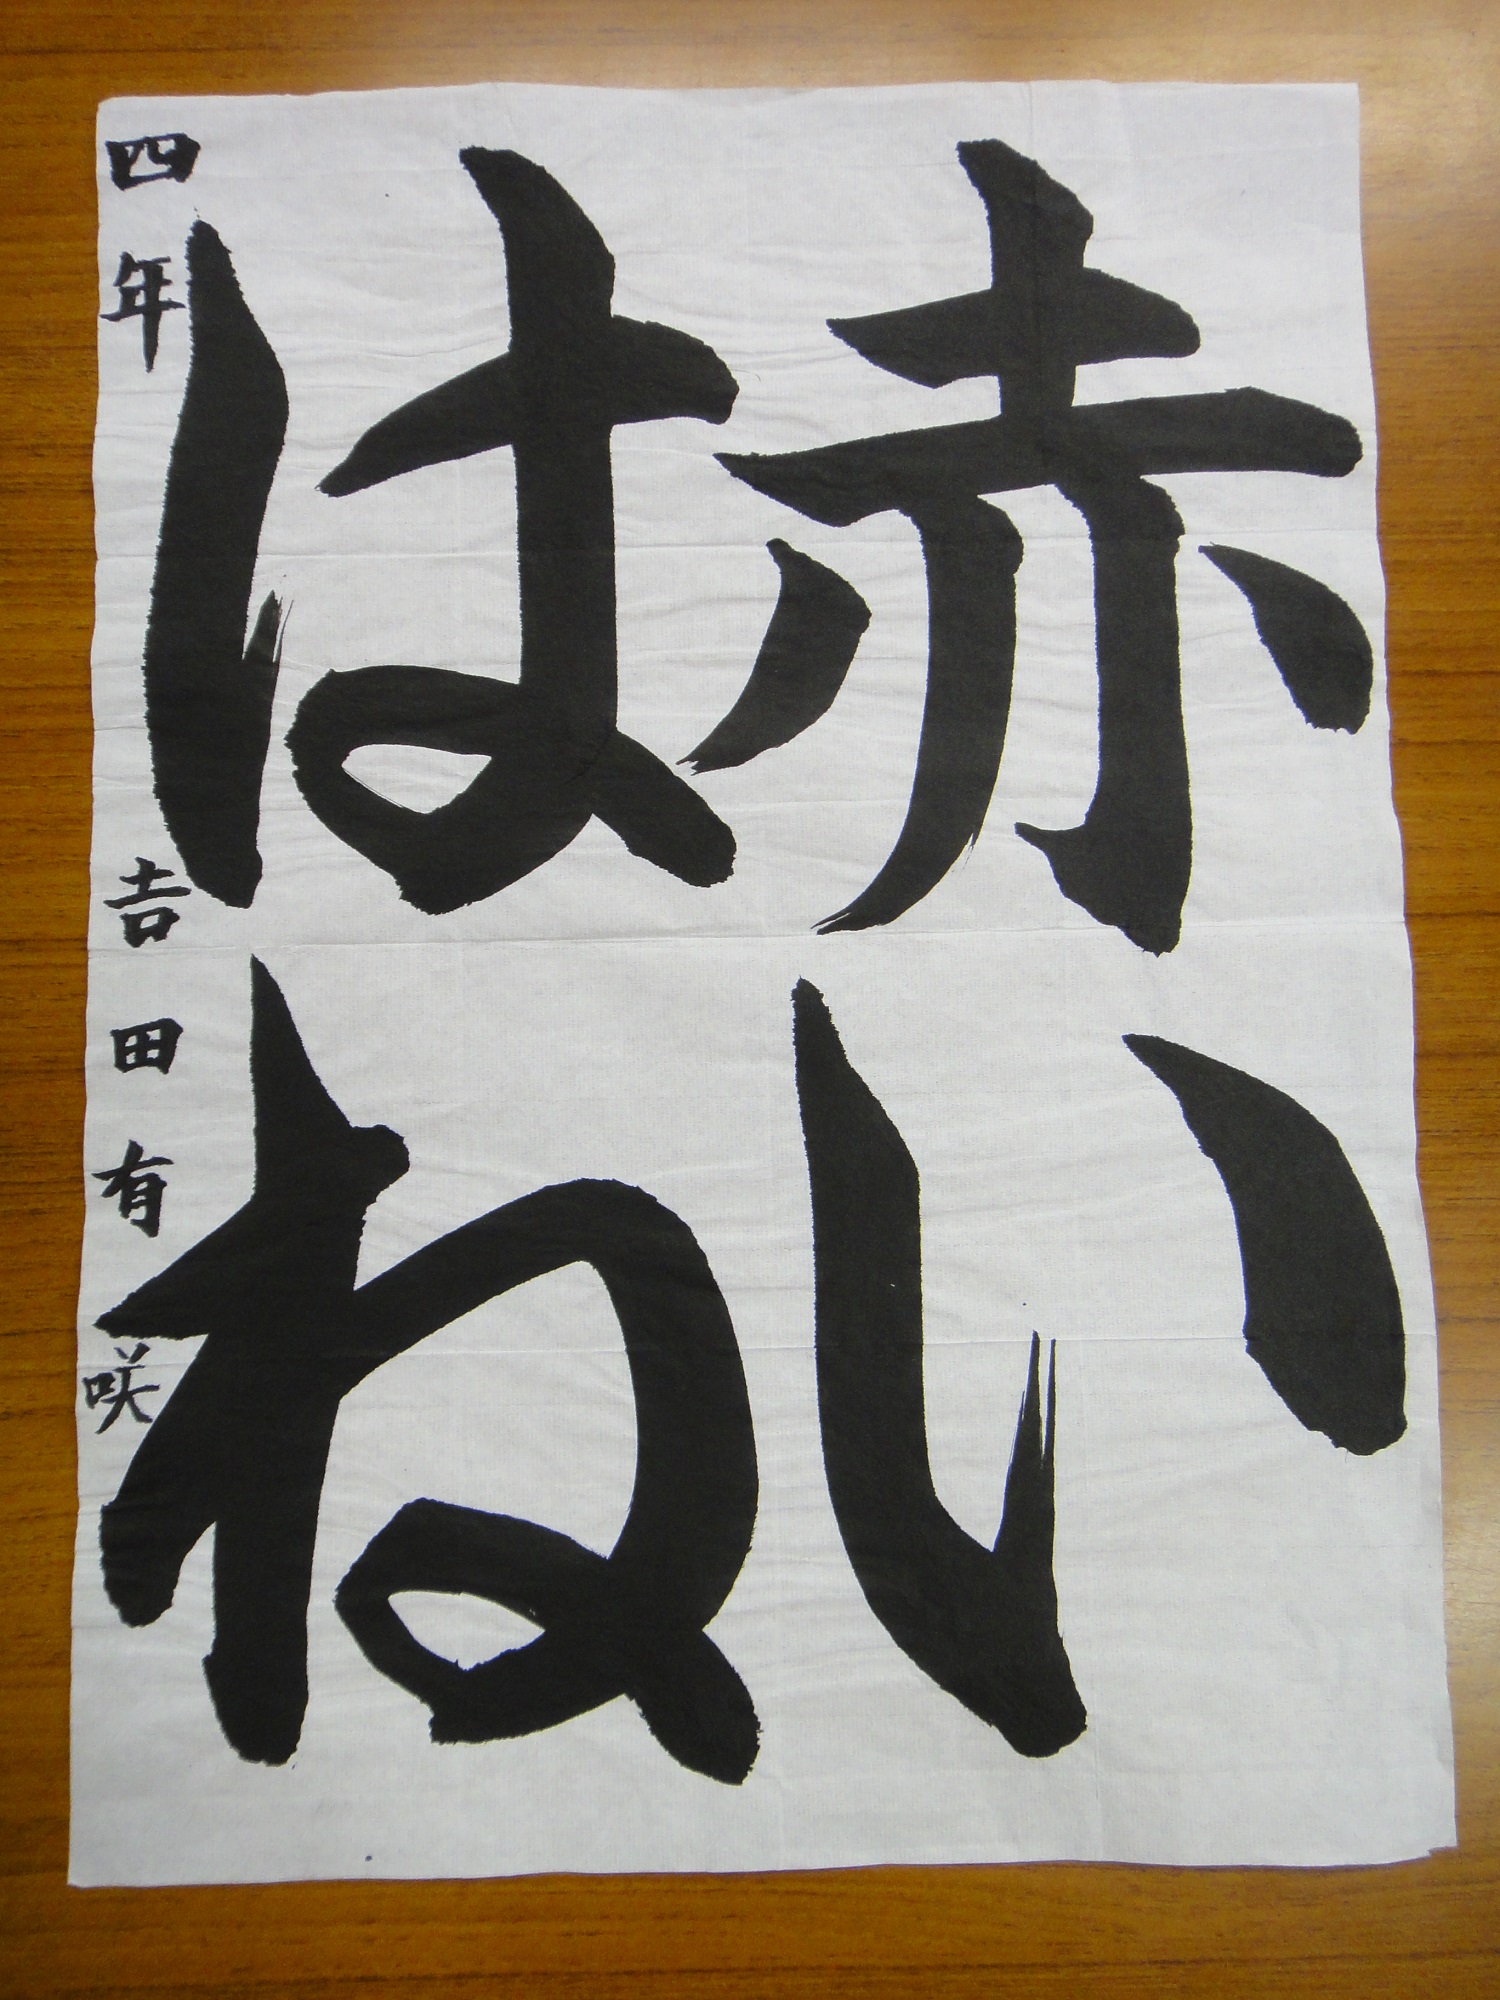 赤い
はね
四年 吉田有咲